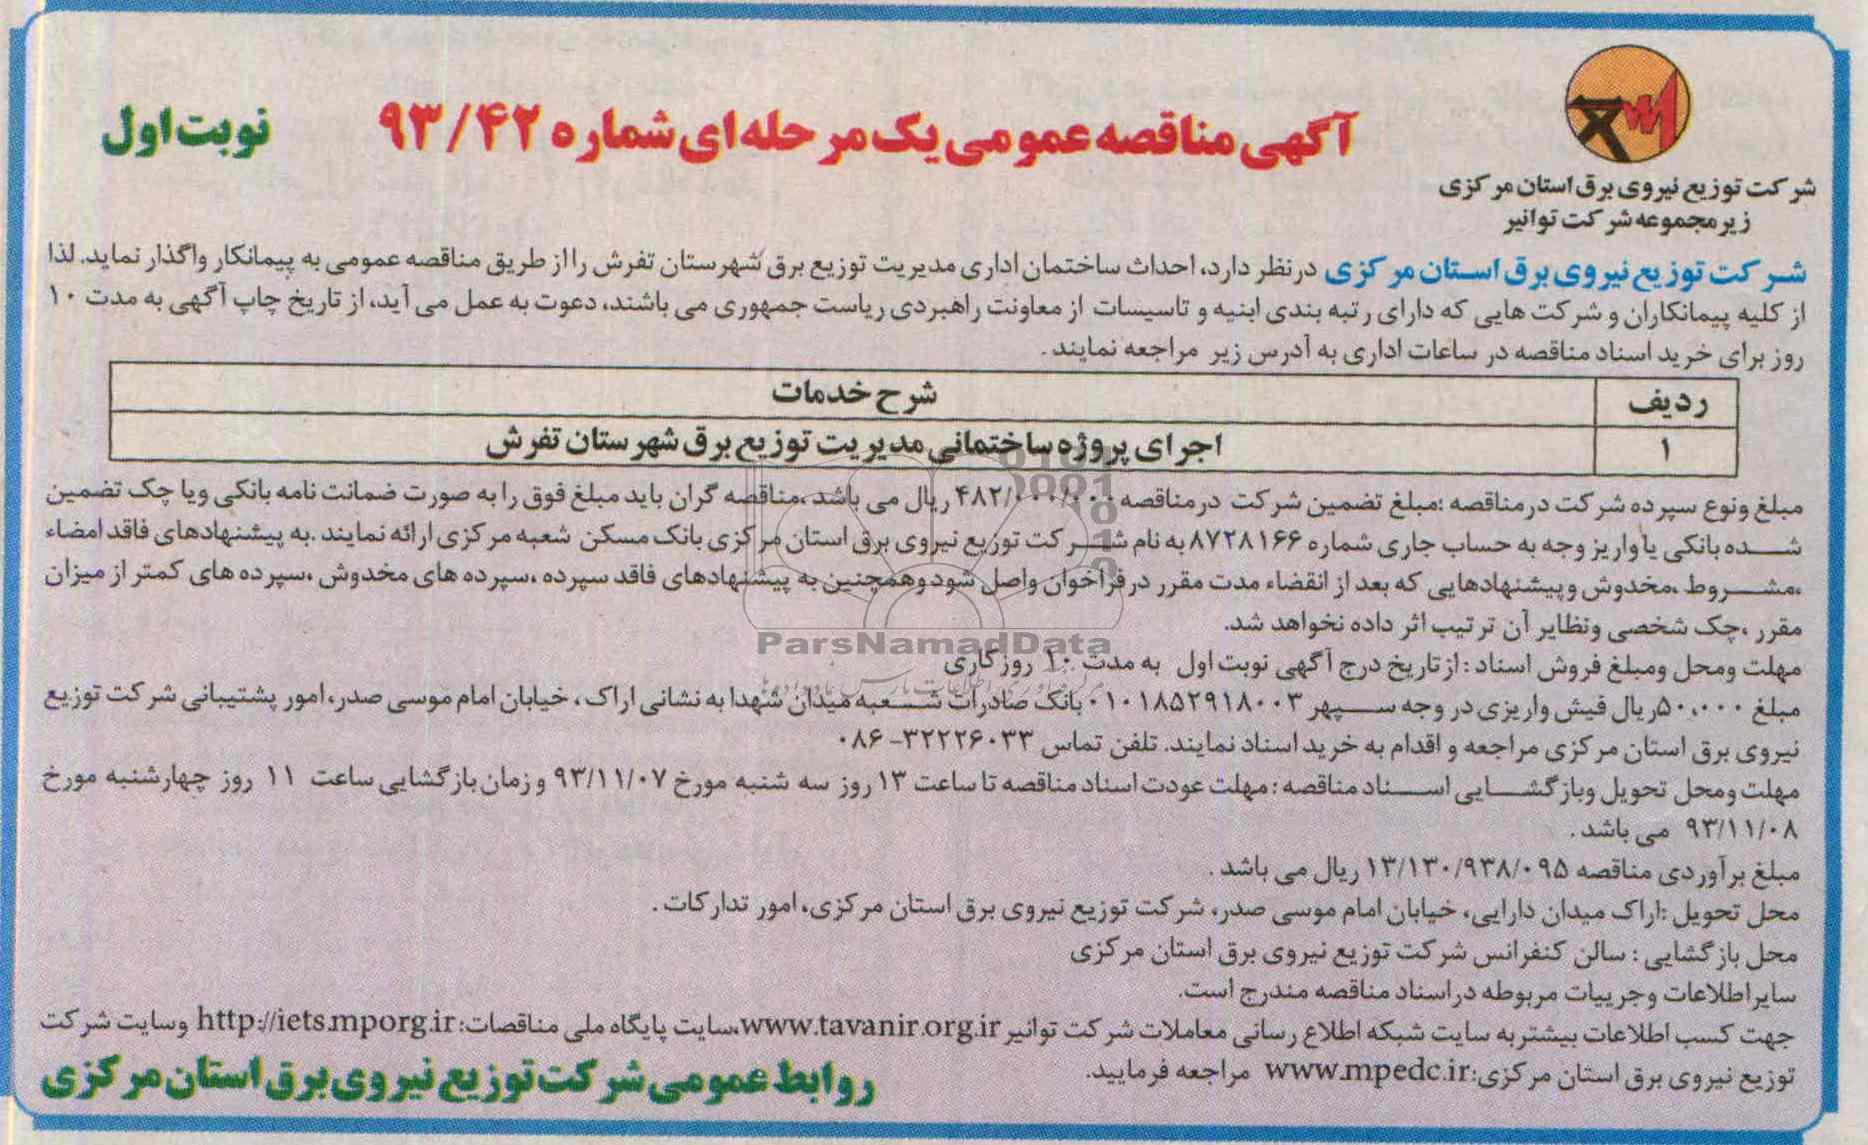 آگهی مناقصه عمومی یک مرحله ای شماره ۹۳/۴۲
نوبت اول
شرکت توزیع نیروی برق استان مرکزی
زیرمجموعه شرکت توانیر
شرکت توزیع نیروی برق استان مرکزی درنظر دارد، احداث ساختمان اداری مدیریت توزیع برق شهرستان تفرش را از طریق مناقصه عمومی به پیمانکار واگذار نماید. لذا
از کلیه پیمانکاران و شرکت هایی که دارای رتبه بندی ابنیه و تاسیسات از معاونت راهبردی ریاست جمهوری می باشند، دعوت به عمل می آید، از تاریخ چاپ آگهی به مدت ۱۰
روز برای خرید اسناد مناقصه در ساعات اداری به آدرس زیر مراجعه نمایند.
ردیف شرح خدمات
۱ اجرای پروژه ساختمانی مدیریت توزیع برق شهرستان تفرش
مبلغ ونوع سپرده شرکت درمناقصه :مبلغ تضمین شرکت درمناقصه ۴۸۲/۰۰۰/۰۰۰ ریال می باشد ،مناقصه گران باید مبلغ فوق را به صورت ضمانت نامه بانکی ویا چک تضمین
شده بانکی یا واریز وجه به حساب جاری شماره ۸۷۲۸۱۶۶ به نام شرکت توزیع نیروی برق استان مرکزی بانک مسکن شعبه مرکزی ارائه نمایند .به پیشنهادهای فاقد امضاء
،مشروط ،مخدوش وپیشنهادهایی که بعد از انقضاء مدت مقرر درفراخوان واصل شود وهمچنین به پیشنهادهای فاقد سپرده ،سپرده های مخدوش ،سپرده های کمتر از میزان
مقرر ،چک شخصی ونظایر آن ترتیب اثر داده نخواهد شد.
مهلت ومحل ومبلغ فروش اسناد : ازتاریخ درج آگهی نوبت اول به مدت ۱۰ روز کاری
مبلغ ۵۰،۰۰۰ریال فیش واریزی در وجه سپهر ۰۱۰۱۸۵۲۹۱۸۰۰۳ بانک صادرات شعبه میدان شهدا به نشانی اراک ، خیابان امام موسی صدر، امور پشتیبانی شرکت توزیع
نیروی برق استان مرکزی مراجعه و اقدام به خرید اسناد نمایند. تلفن تماس ۳۲۲۲۶۰۳۳-۰۸۶
مهلت ومحل تحویل وبازگشایی اسناد مناقصه : مهلت عودت اسناد مناقصه تا ساعت ۱۳ روز سه شنبه مورخ ۹۳/۱۱/۰۷ و زمان بازگشایی ساعت ۱۱ روز چهارشنبه مورخ
۹۳/۱۱/۰۸ می باشد .
مبلغ برآوردی مناقصه ۱۳/۱۳۰/۹۳۸/۰۹۵ ریال می باشد .
محل تحویل :اراک میدان دارایی، خیابان امام موسی صدر، شرکت توزیع نیروی برق استان مرکزی، امور تدارکات .
محل بازگشایی : سالن کنفرانس شرکت توزیع نیروی برق استان مرکزی
سایر اطلاعات وجزییات مربوطه دراسناد مناقصه مندرج است.
جهت کسب اطلاعات بیشتر به سایت شبکه اطلاع رسانی معاملات شرکت توانیر www.tavanir.org.ir،سایت پایگاه ملی مناقصات: http://iets.mporg.ir وسایت شرکت
توزیع نیروی برق استان مرکزی:www.mpedc.ir مراجعه فرمایید.
روابط عمومی شرکت توزیع نیروی برق استان مرکزی
ParsNamadData